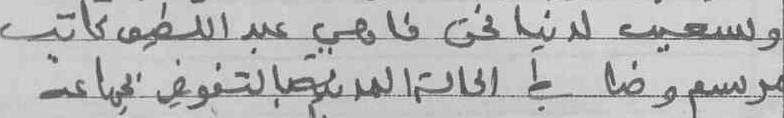 ولسعيد لدنيا نحن فاهي عبد اللطيف كاتب
مرسم وضابط الحالة المدنية بالتفويض بجماعة